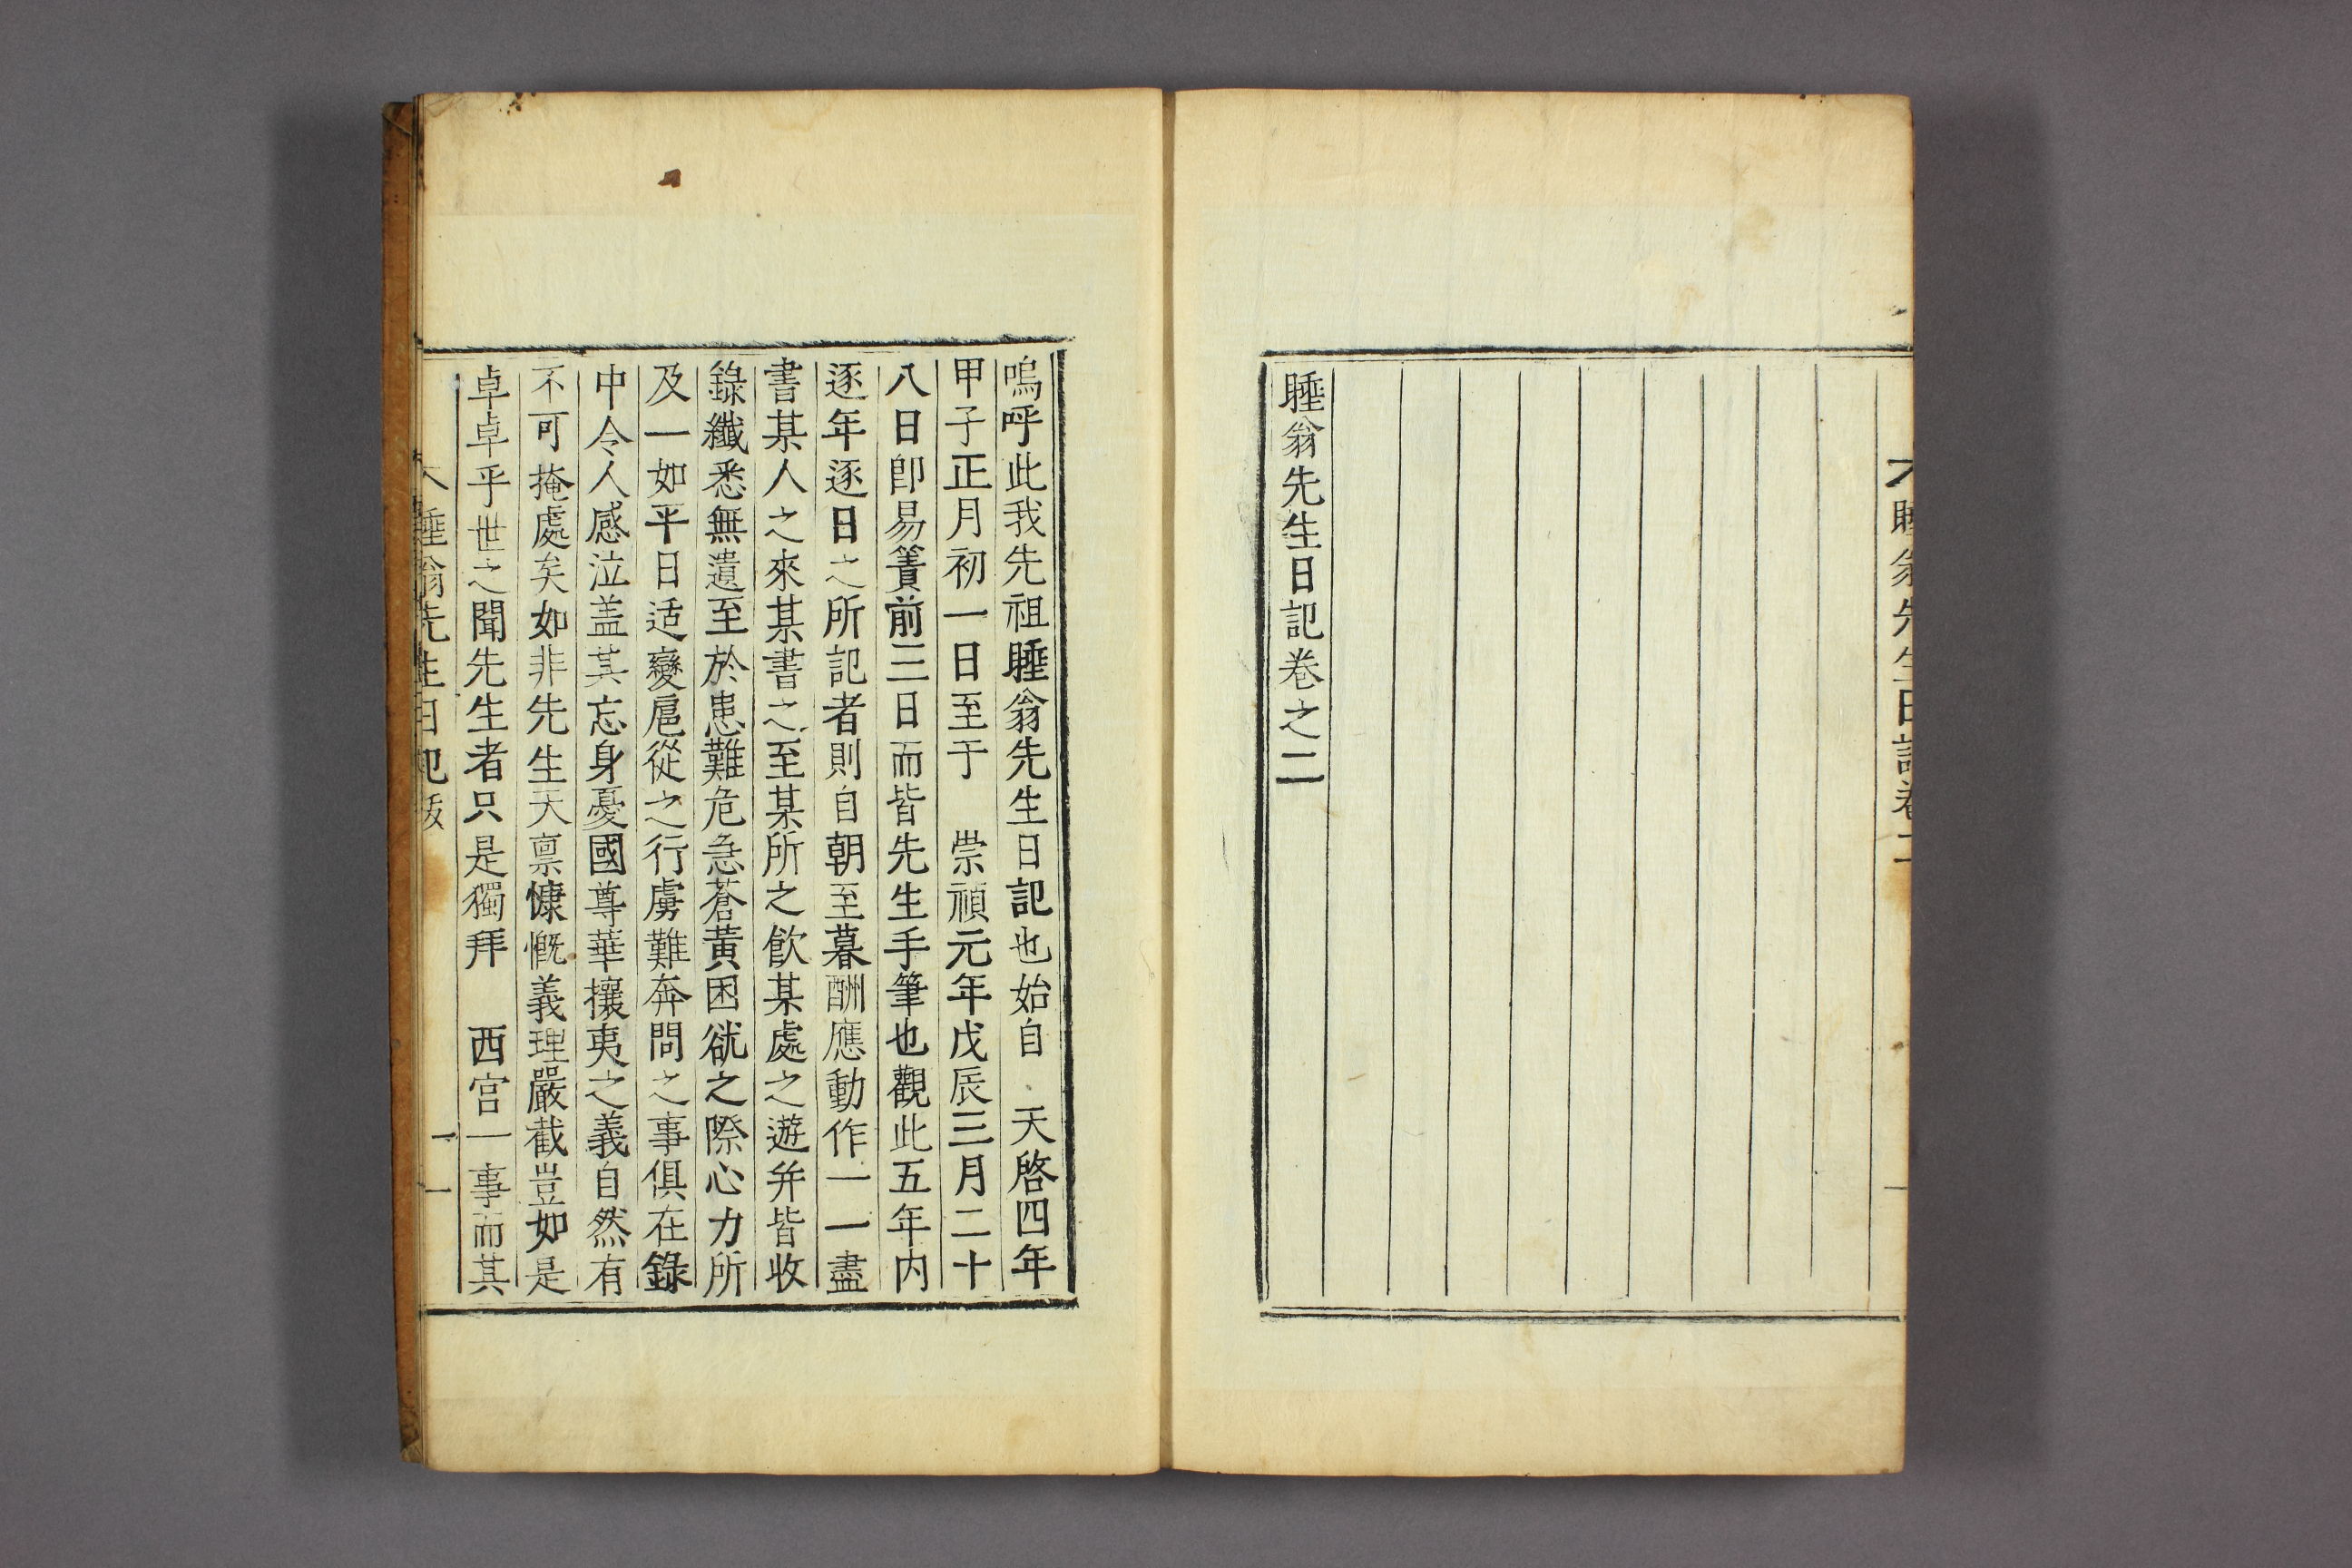 睡翁先生日記卷之二
嗚呼此我先祖睡翁先生日記也始自 天啓四年
甲子正月初一日至于 崇禎元年戊辰三月二十
八日卽易簀前三日而皆先生手筆也觀此五年内
逐年逐日之所記者則自朝至暮酬應動作一一盡
書某人之來某書之至某所之飮某處之遊并皆收
錄纖悉無遺至於患難危急蒼黃困㑃之際心力所
及一如平日适變扈從之行虜難奔問之事俱在錄
中令人感泣盖其忘身憂國尊華攘夷之義自然有
不可掩處矣如非先生天禀慷慨義理嚴截豈如是
卓卓乎世之聞先生者只是獨拜 西宮一事而其
睡翁先生日記跋 一